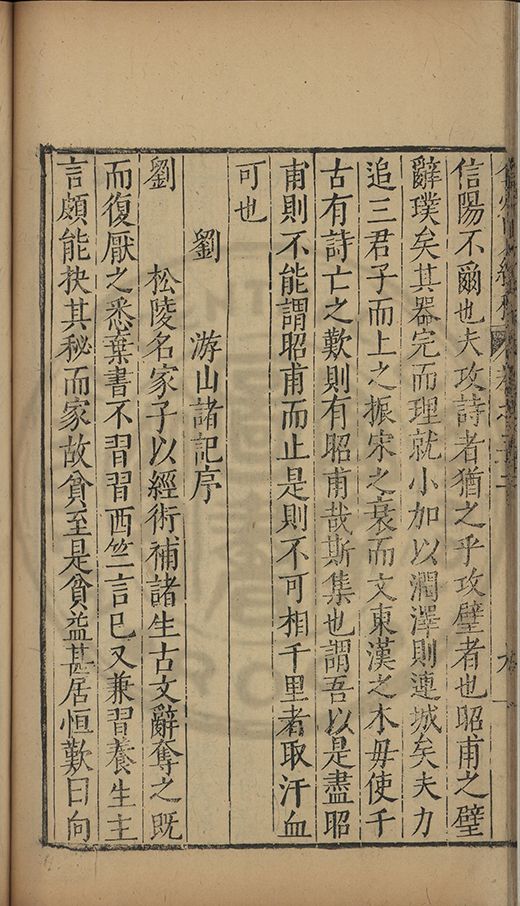 信陽不爾也夫攻詩者猶之乎攻璧者也昭甫之璧
辭璞矣其器完而理就小加以潤澤則連城矣夫力
追三君子而上之振宋之衰而文東漢之木毋使千
古有詩亡之歎則有昭甫哉斯集也謂吾以是盡昭
甫則不能謂昭甫而止是則不可相千里者取汗血
可也
劉 游山諸記序
劉 松陵名家子以經術補諸生古文辭奪之旣
而復厭之悉棄書不習習西竺言已又兼習養生主
言頗能抉其秘而家故貧至是貧益甚居恒歎曰向